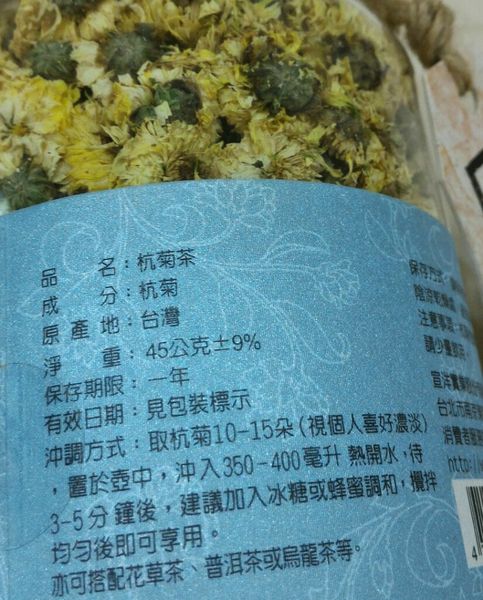 品　　名：杭菊茶
成　　分：杭菊
原 產 地：台灣
淨　　重：45公克±9%
保存期限：一年
有效日期：見包裝標示
沖調方式：取杭菊10-15朵(視個人喜好濃淡)
，置於壺中，沖入350-400毫升 熱開水，待
3-5分鐘後，建議加入冰糖或蜂蜜調和，攪拌
均勻後即可享用。
亦可搭配花草茶、普洱茶或烏龍茶等。
保存方式：
陰涼乾燥處
注意事項：
請少量
宣洋實業
台北市南
消費者服務
http://
4